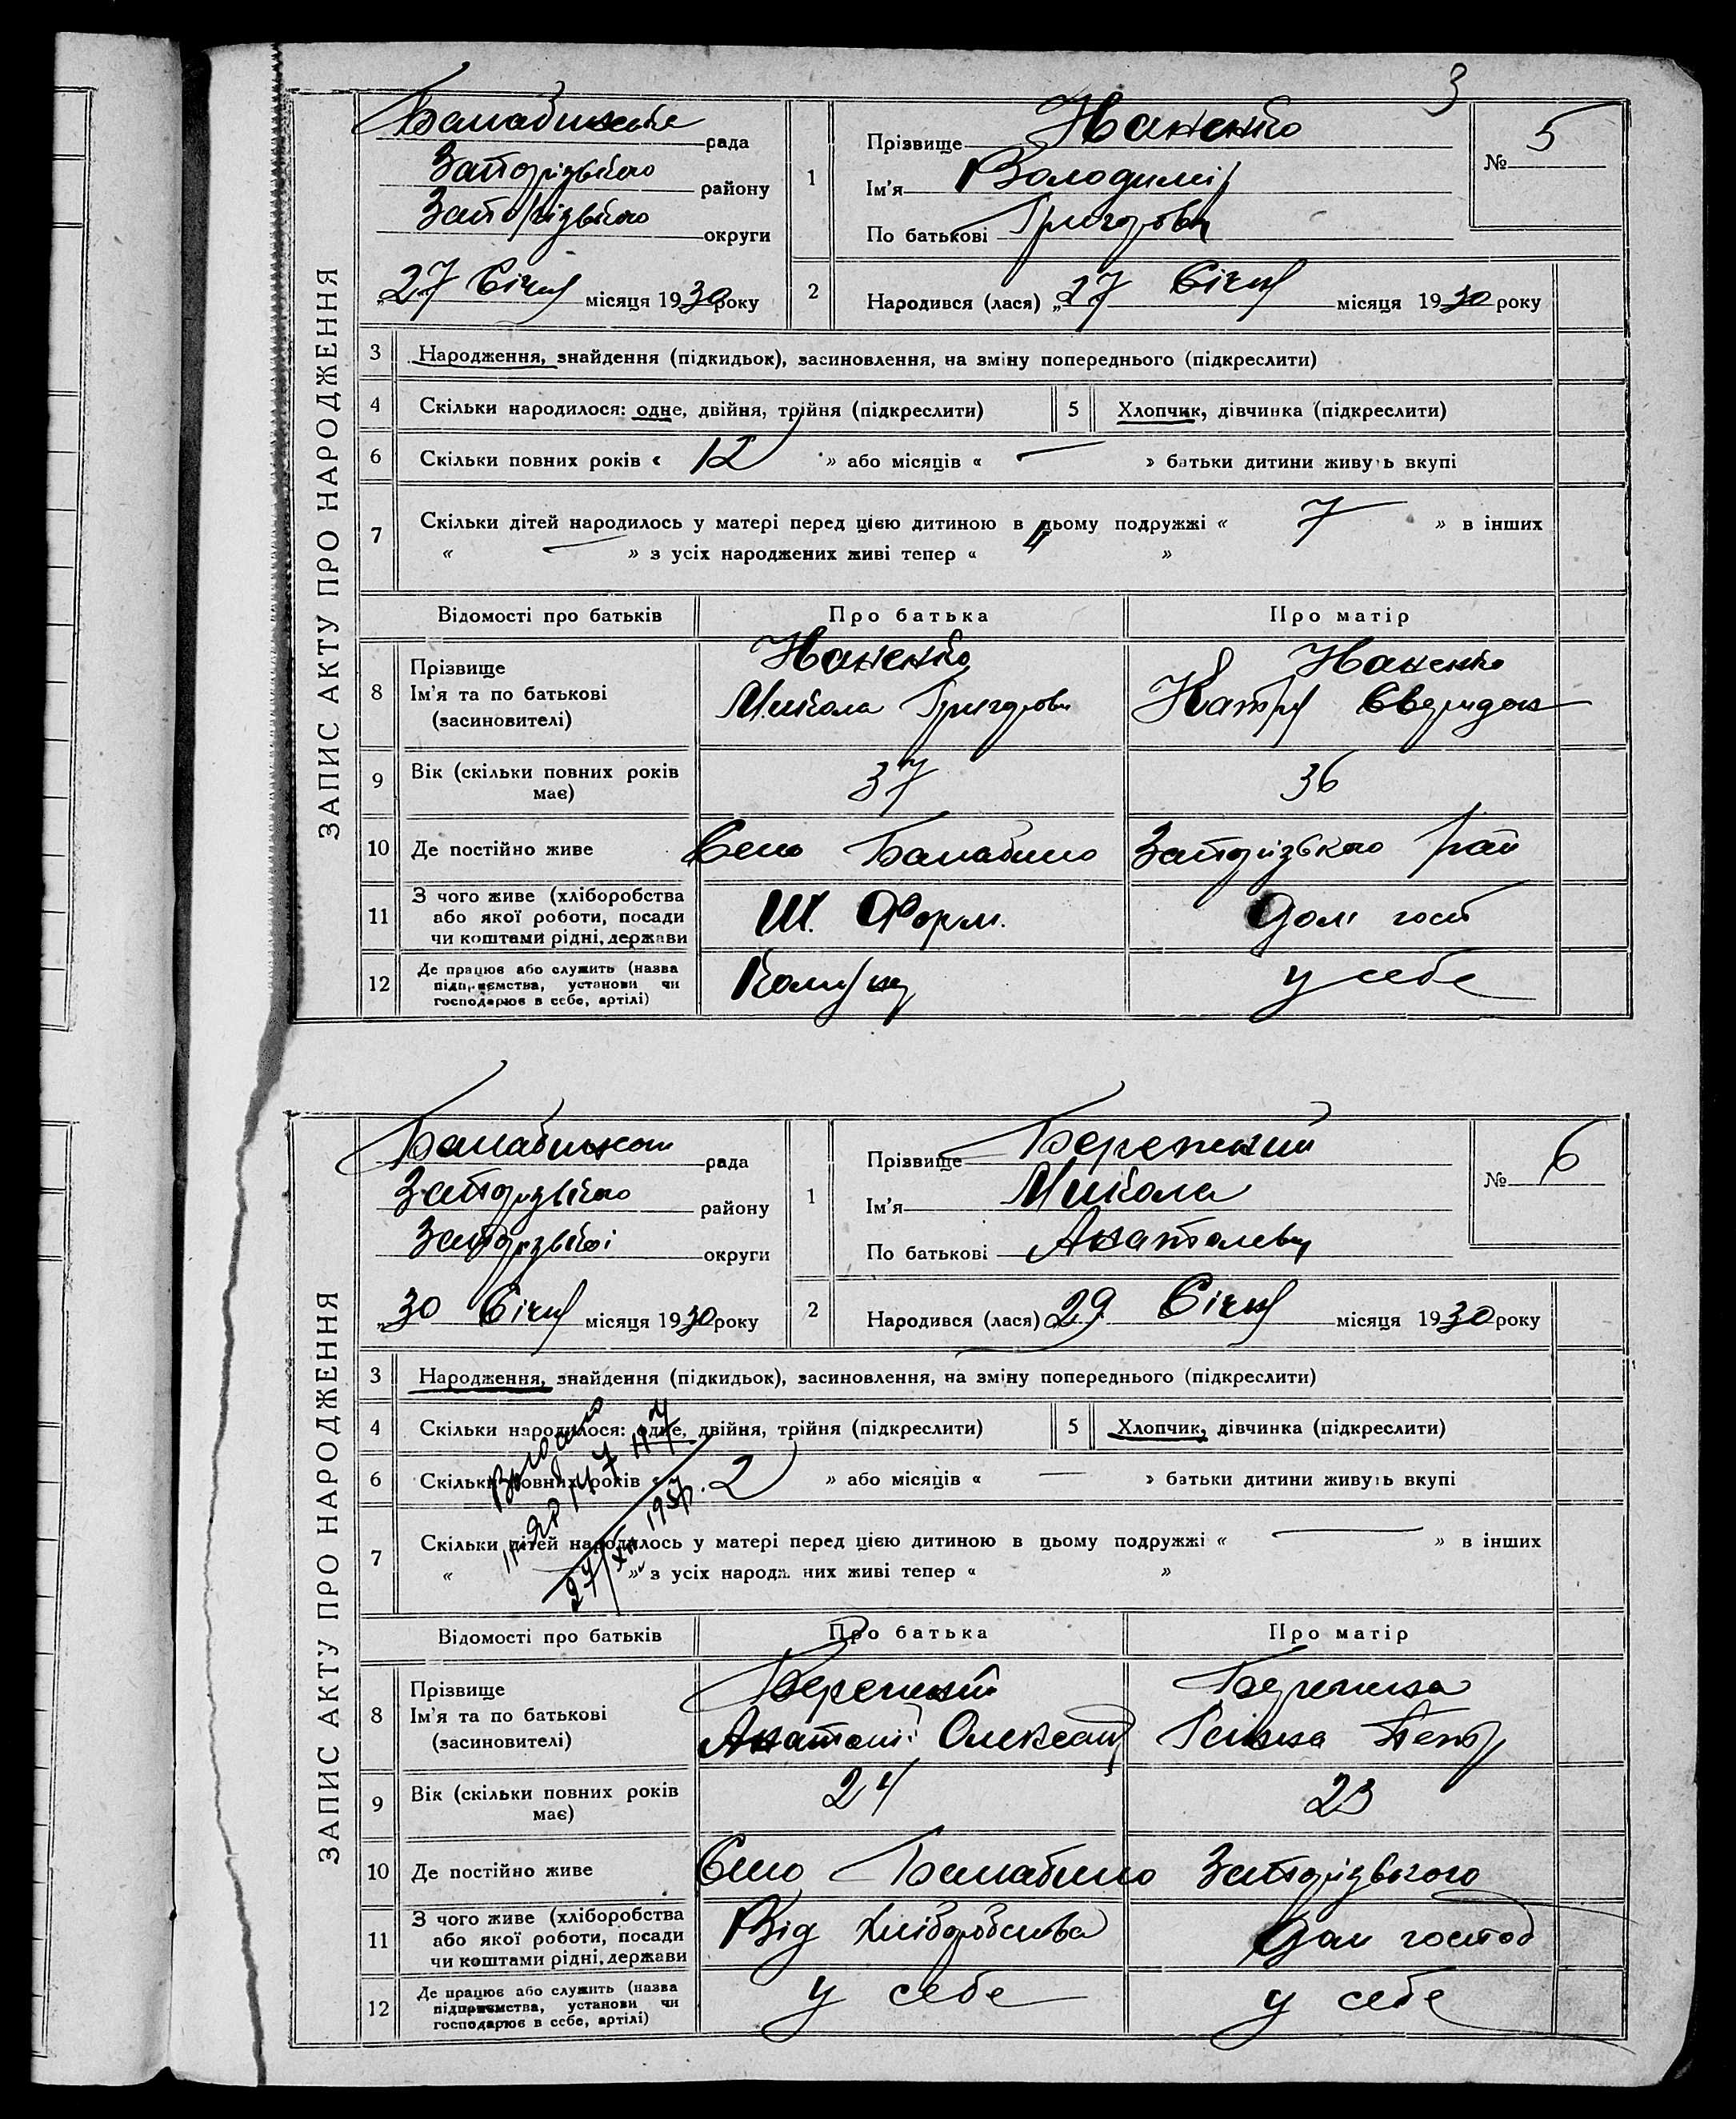 3
ЗАПИС АКТУ ПРО НАРОДЖЕННЯ
Балабинська рада
Запорізького району
Запорізького округи
„27 Січня місяця 1930 року
1
Прізвище
Ім'я Володимір
По батькові Григорович
№ 5
2 Народився (лася) „27 Січня місяця 1930 року
3 Народження, знайдення (підкидьок), засиновлення, на зміну попереднього (підкреслити)
4 Скільки народилося: одне, двійня, трійня (підкреслити) 5 Хлопчик, дівчинка (підкреслити)
6 Скільки повних років « 12 » або місяців « — » батьки дитини живуть вкупі
7 Скільки дітей народилось у матері перед цією дитиною в цьому подружжі « 7 » в інших
« — » з усіх народжених живі тепер « 4 »
Відомості про батьків Про батька Про матір
8 Прізвище
Ім'я та по батькові Микола Григорович Катря
(засиновителі)
9 Вік (скільки повних років має) 37 36
10 Де постійно живе Село Балабино Запорізького рай
11 З чого живе (хліборобства або якої роботи, посади чи коштами рідні, держави Ш. Форм. Дом госп
12 Де працює або служить (назва підприємства, установи чи господарює в себе, артілі) у себе
ЗАПИС АКТУ ПРО НАРОДЖЕННЯ
Балабинська рада
Запорізького району
Запорізької округи
„30 Січня місяця 1930 року
1
Прізвище Бережний
Ім'я Микола
По батькові Анатолевич
№ 6
2 Народився (лася) „29 Січня місяця 1930 року
3 Народження, знайдення (підкидьок), засиновлення, на зміну попереднього (підкреслити)
4 Скільки народилося: одне, двійня, трійня (підкреслити) 5 Хлопчик, дівчинка (підкреслити)
6 Скільки повних років « 2 » або місяців « — » батьки дитини живуть вкупі
7 Скільки дітей народилось у матері перед цією дитиною в цьому подружжі « — » в інших
« » з усіх народжених живі тепер « »
Відомості про батьків Про батька Про матір
8 Прізвище Бережний Бережна
Ім'я та по батькові Анатолій Олександ Петр
(засиновителі)
9 Вік (скільки повних років має) 24 23
10 Де постійно живе Село Балабино Запорізького
11 З чого живе (хліборобства або якої роботи, посади чи коштами рідні, держави Від хліборобства Дом господ
12 Де працює або служить (назва підприємства, установи чи господарює в себе, артілі) у себе у себе